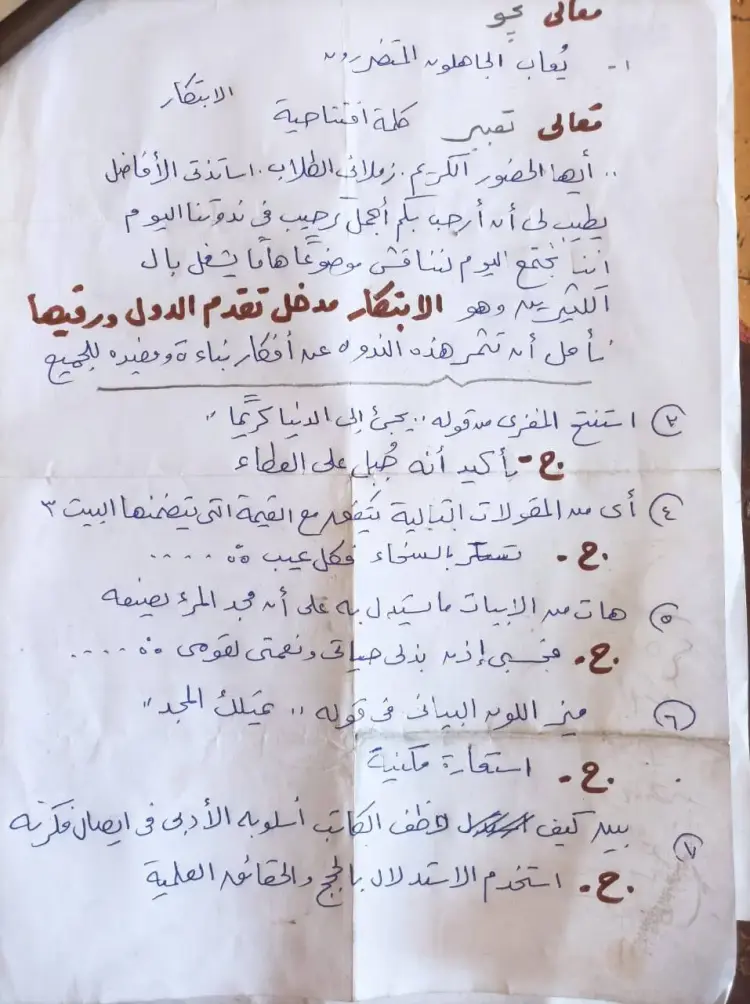 معالى نحو
١- يُعاب الجاهلون المتضررون
الابتكار
تعالى تعبير كلمة افتتاحية
.. أيها الحضور الكريم. زملائى الطلاب. اساتذتى الأفاضل
يطيب لى أن أرحب بكم أجمل ترحيب فى ندوتنا اليوم
اننا نجتمع اليوم لنناقش موضوعًا هامًا يشغل بال
الكثيرين وهو الابتكار مدخل تقدم الدول ورقيها
نأمل أن تثمر هذه الندوه عن أفكار بناءة ومفيده للجميع
٢ استنتج المغزى من قوله .. يجئ إلى الدنيا كريمًا "
ج- تأكيد أنه جُبل على العطاء
٤ أى من المقولات التالية يتفق مع القيمة التى يتضمنها البيت ٣
ج. تستر بالسخاء فكل عيب ٥٥ ....
٥ هات من الابيات ما يستدل به على أن مجد المرء يصنعه
ج. فحسبى إذن بذلى حياتى ونعمتى لقومى ٥٥ ....
٦ ميز اللون البيانى فى قوله ,, يمتلك المجد "
ج. استعارة مكنية
٧ بين كيف وظف الكاتب أسلوبه الأدبى فى ايصال فكرته
ج. استخدم الاستدلال بالحجج والحقائق العلمية